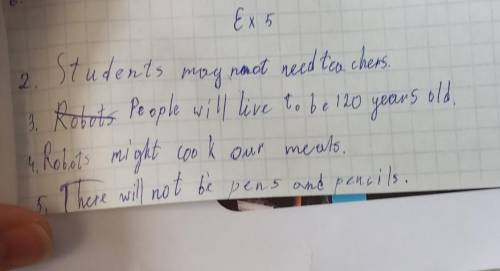 Ex 5
2. Students may not need teachers.
3. Robots People will live to be 120 years old.
4. Robots might cook our meals.
5. There will not be pens and pencils.